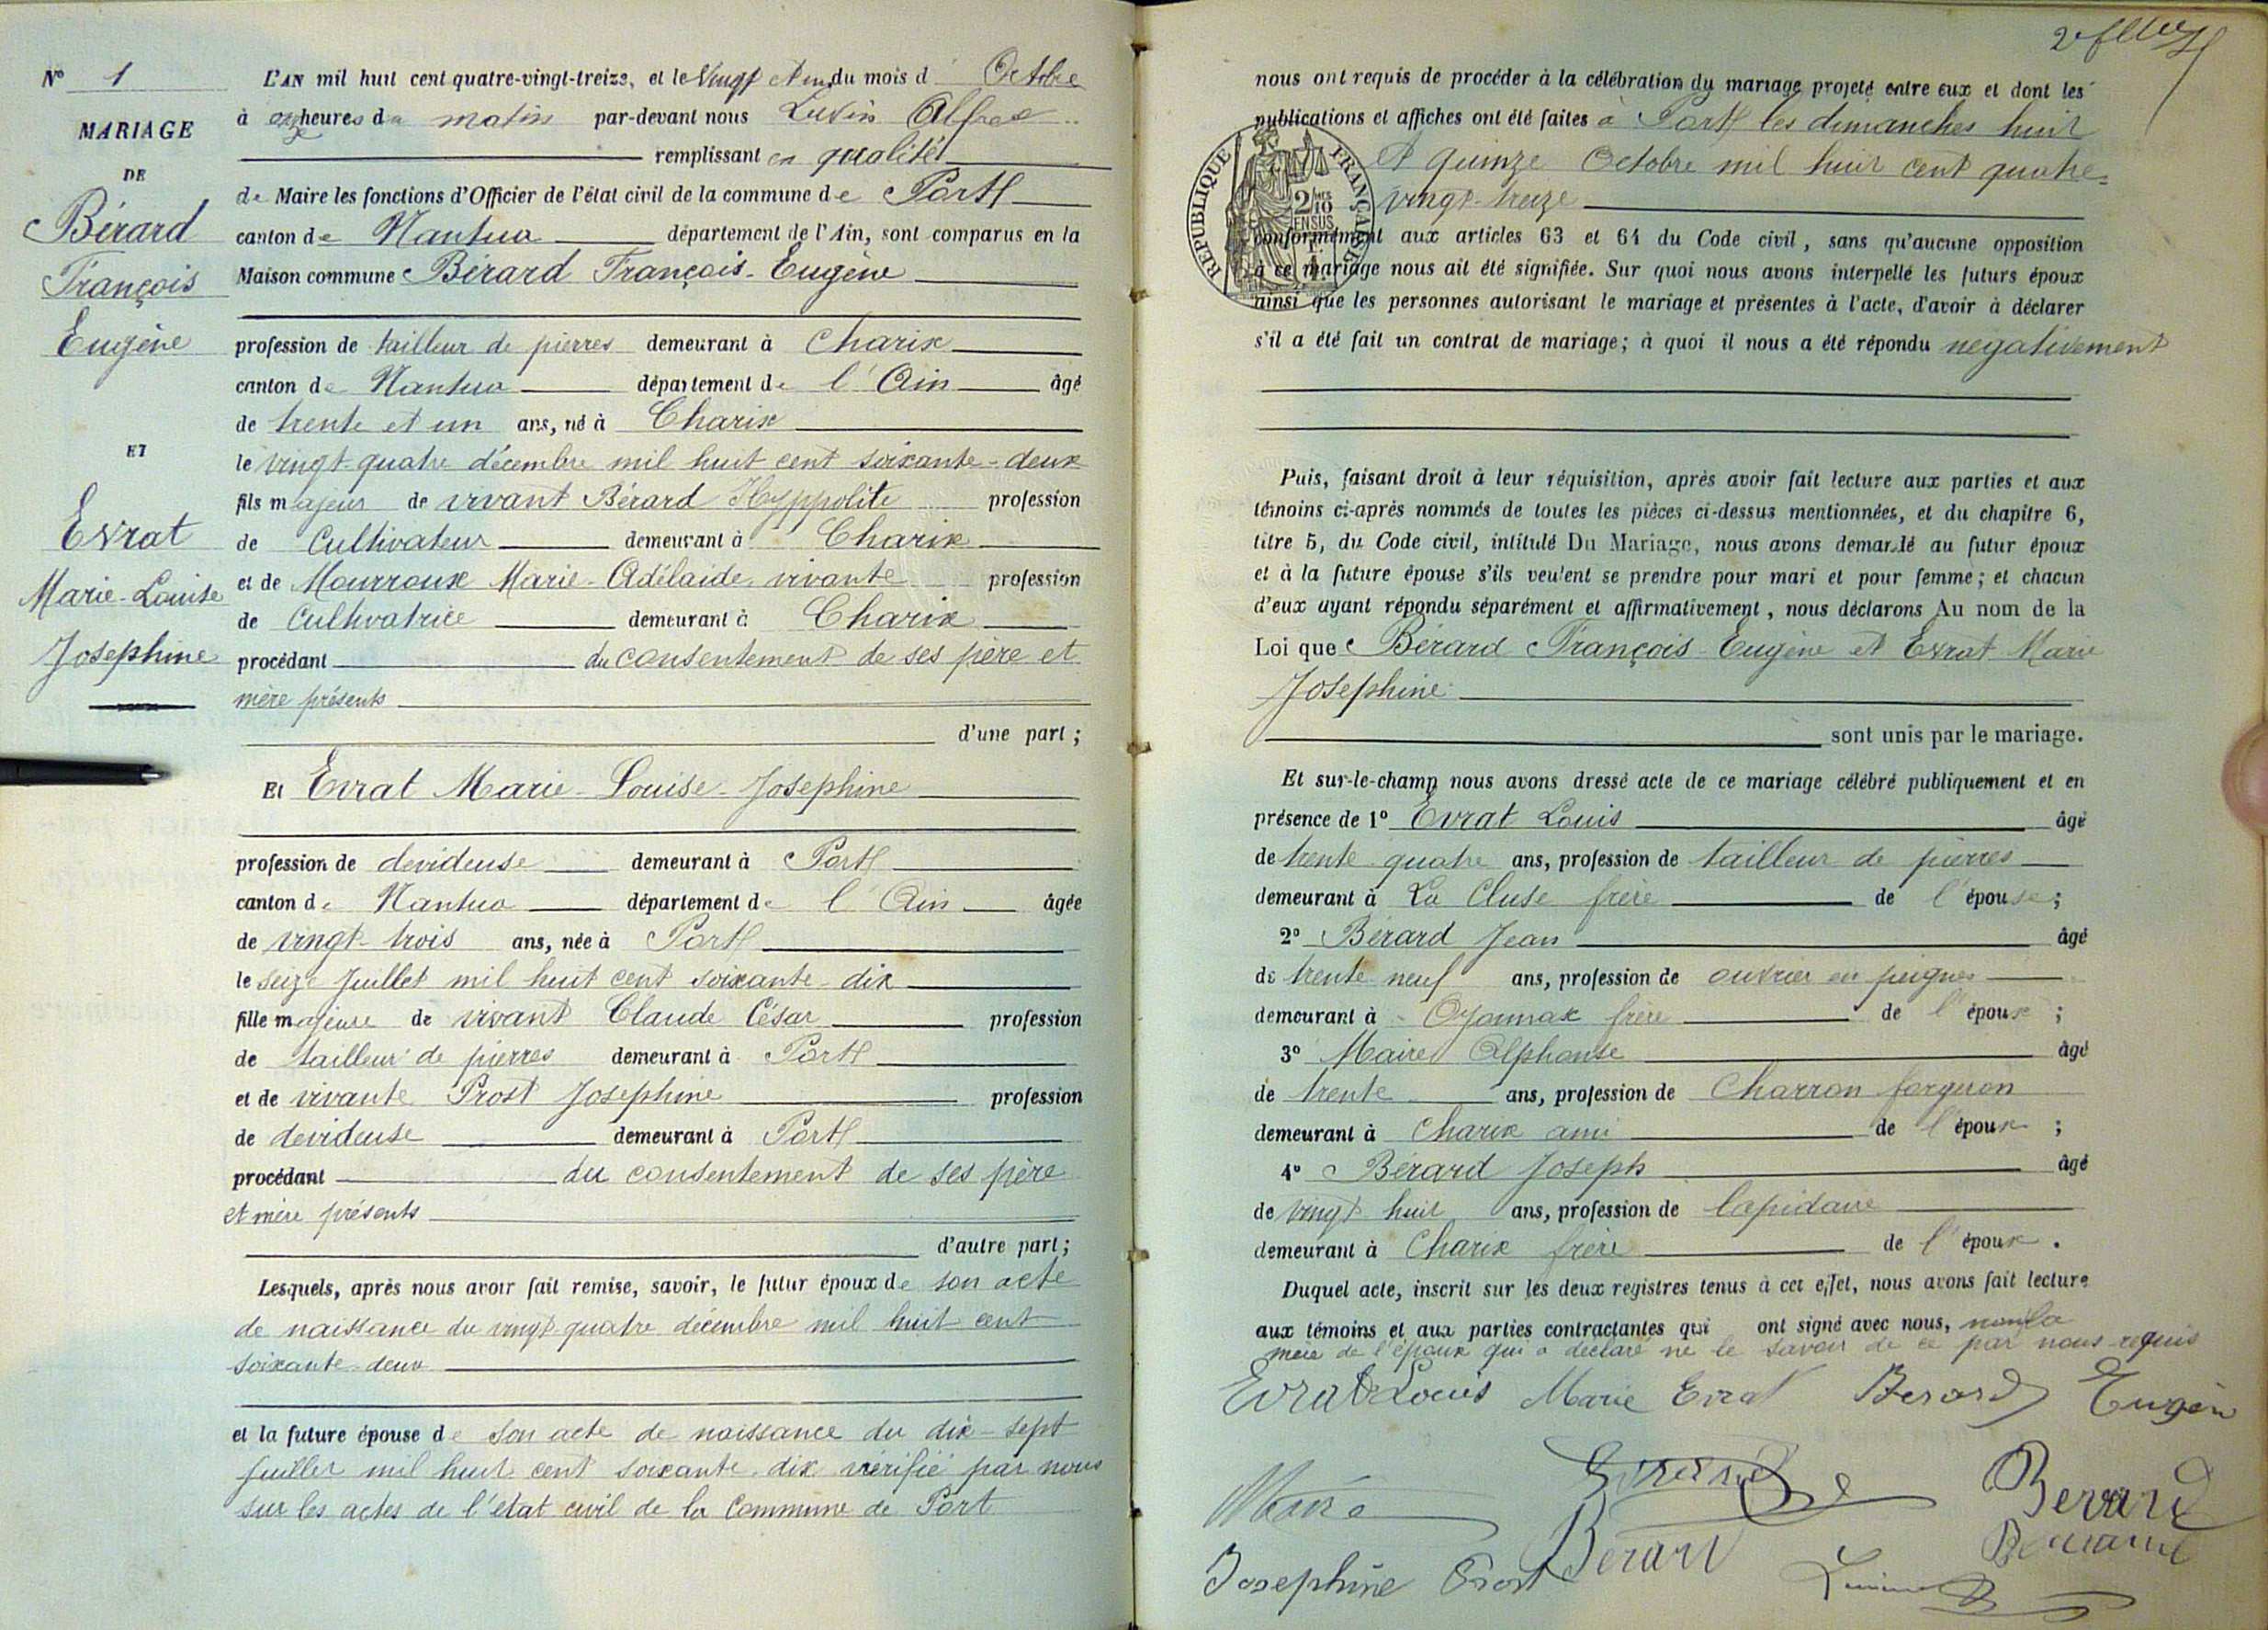 N° 1
MARIAGE
DE
Bérard
François
Eugène
ET
Evrat
Marie-Louise
Josephine
L'AN mil huit cent quatre-vingt-treize, et le Vingt et un du mois d Octobre
à onze heures du matin par-devant nous Luvin Alfred
remplissant en qualité
de Maire les fonctions d'Officier de l'état civil de la commune de Port
canton de Nantua département de l'Ain, sont comparus en la
Maison commune Bérard François-Eugène
profession de tailleur de pierres demeurant à Charix
canton de Nantua département de l'Ain âgé
de trente et un ans, né à Charix
le vingt-quatre décembre mil huit cent soixante-deux
fils majeur de vivant Bérard Hyppolite profession
de Cultivateur demeurant à Charix
et de Mourroux Marie-Adélaïde vivante profession
de Cultivatrice demeurant à Charix
procédant du consentement de ses père et
mère présents
d'une part ;
Et Evrat Marie-Louise-Josephine
profession de devideuse demeurant à Port
canton de Nantua département de l'Ain âgée
de vingt-trois ans, née à Port
le seize Juillet mil huit cent soixante-dix
fille majeure de vivant Claude César profession
de tailleur de pierres demeurant à Port
et de vivante Prost Josephine profession
de devideuse demeurant à Port
procédant du consentement de ses père
et mère présents
d'autre part ;
Lesquels, après nous avoir fait remise, savoir, le futur époux de son acte
de naissance du vingt-quatre décembre mil huit cent
soixante-deux
et la future épouse de son acte de naissance du dix-sept
Juillet mil huit cent soixante-dix vérifié par nous
sur les actes de l'état civil de la Commune de Port
nous ont requis de procéder à la célébration du mariage projeté entre eux et dont les
publications et affiches ont été faites à Port les dimanches huit
et quinze Octobre mil huit cent quatre-
vingt-treize
RÉPUBLIQUE FRANÇAISE
2/10
EN SUS
conformément aux articles 63 et 64 du Code civil, sans qu'aucune opposition
à ce mariage nous ait été signifiée. Sur quoi nous avons interpellé les futurs époux
ainsi que les personnes autorisant le mariage et présentes à l'acte, d'avoir à déclarer
s'il a été fait un contrat de mariage ; à quoi il nous a été répondu négativement
Puis, faisant droit à leur réquisition, après avoir fait lecture aux parties et aux
témoins ci-après nommés de toutes les pièces ci-dessus mentionnées, et du chapitre 6,
titre 5, du Code civil, intitulé Du Mariage, nous avons demandé au futur époux
et à la future épouse s'ils veulent se prendre pour mari et pour femme ; et chacun
d'eux ayant répondu séparément et affirmativement, nous déclarons Au nom de la
Loi que Bérard François-Eugène et Evrat Marie
Josephine
sont unis par le mariage.
Et sur-le-champ nous avons dressé acte de ce mariage célébré publiquement et en
présence de 1° Evrat Louis âgé
de trente-quatre ans, profession de tailleur de pierres
demeurant à La Cluse frère de l'épouse ;
2° Bérard Jean âgé
de trente-neuf ans, profession de ouvrier en peignes
demeurant à Oyonnax frère de l'époux ;
3° Maire Alphonse âgé
de trente ans, profession de Charron forgeron
demeurant à Charix ami de l'époux ;
4° Bérard Joseph âgé
de vingt-huit ans, profession de lapidaire
demeurant à Charix frère de l'époux .
Duquel acte, inscrit sur les deux registres tenus à cet effet, nous avons fait lecture
aux témoins et aux parties contractantes qui ont signé avec nous, non la
mère de l'époux qui a déclaré ne le savoir de ce par nous requis
Evrat Louis Marie Evrat Berard Eugène
Berard
Berard
Josephine Prost